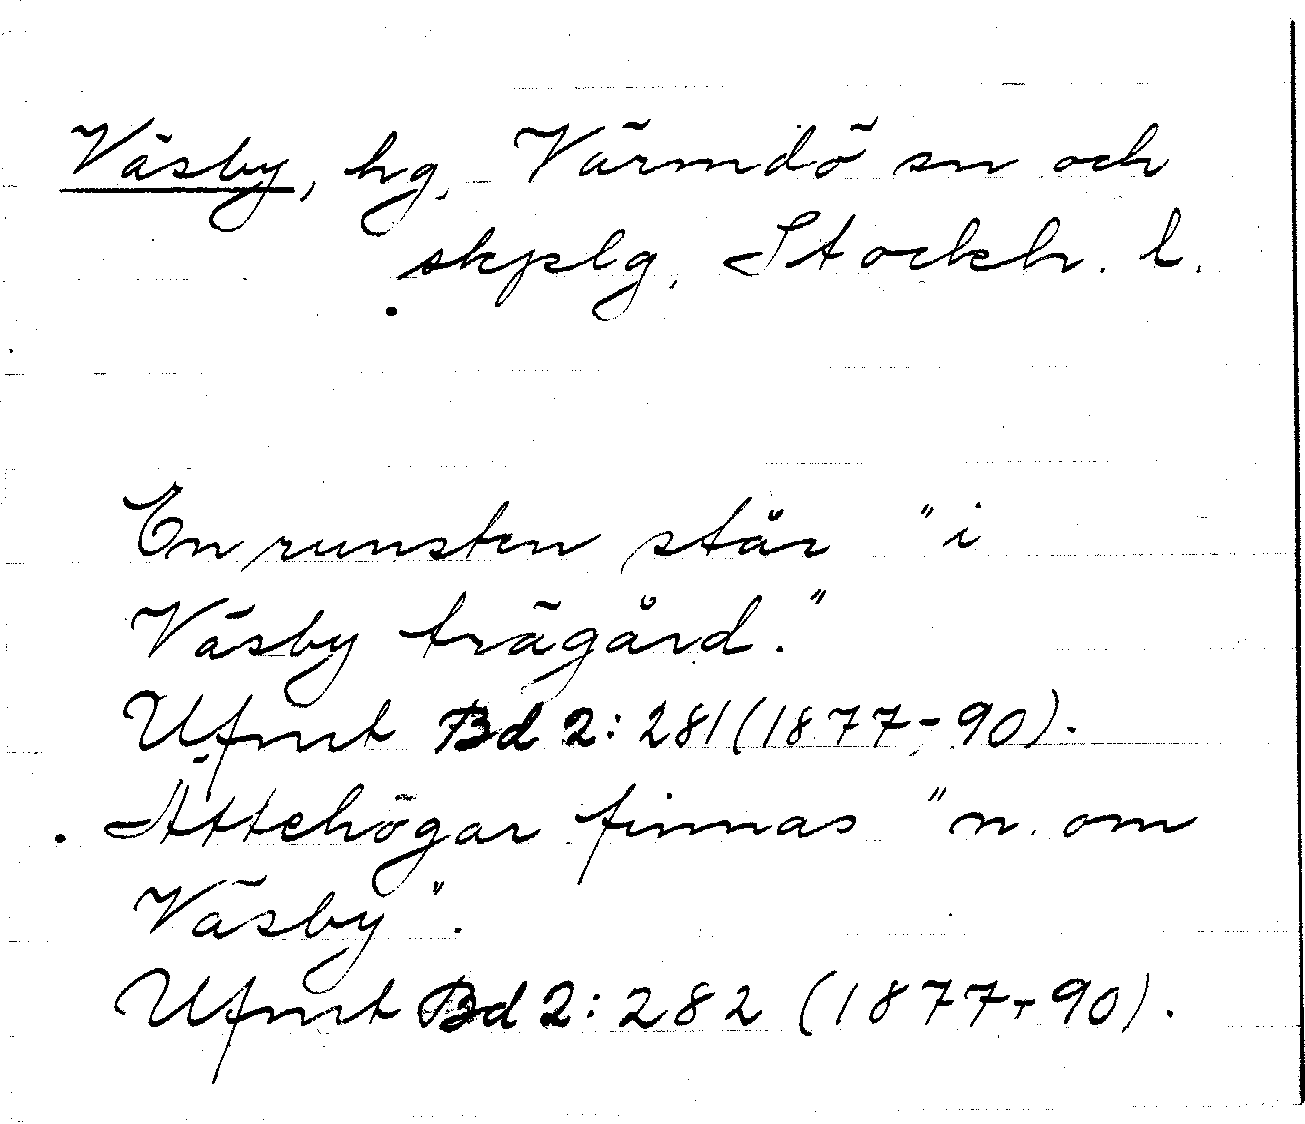 Väsby, hg, Värmdö sn och
skplg, Stockh. l.
En runsten står "i
Väsby trägård."
Ufmt Bd 2: 281 (1877-90).
Ättehögar finnas "n. om
Väsby".
Ufmt Bd 2: 282 (1877-90).